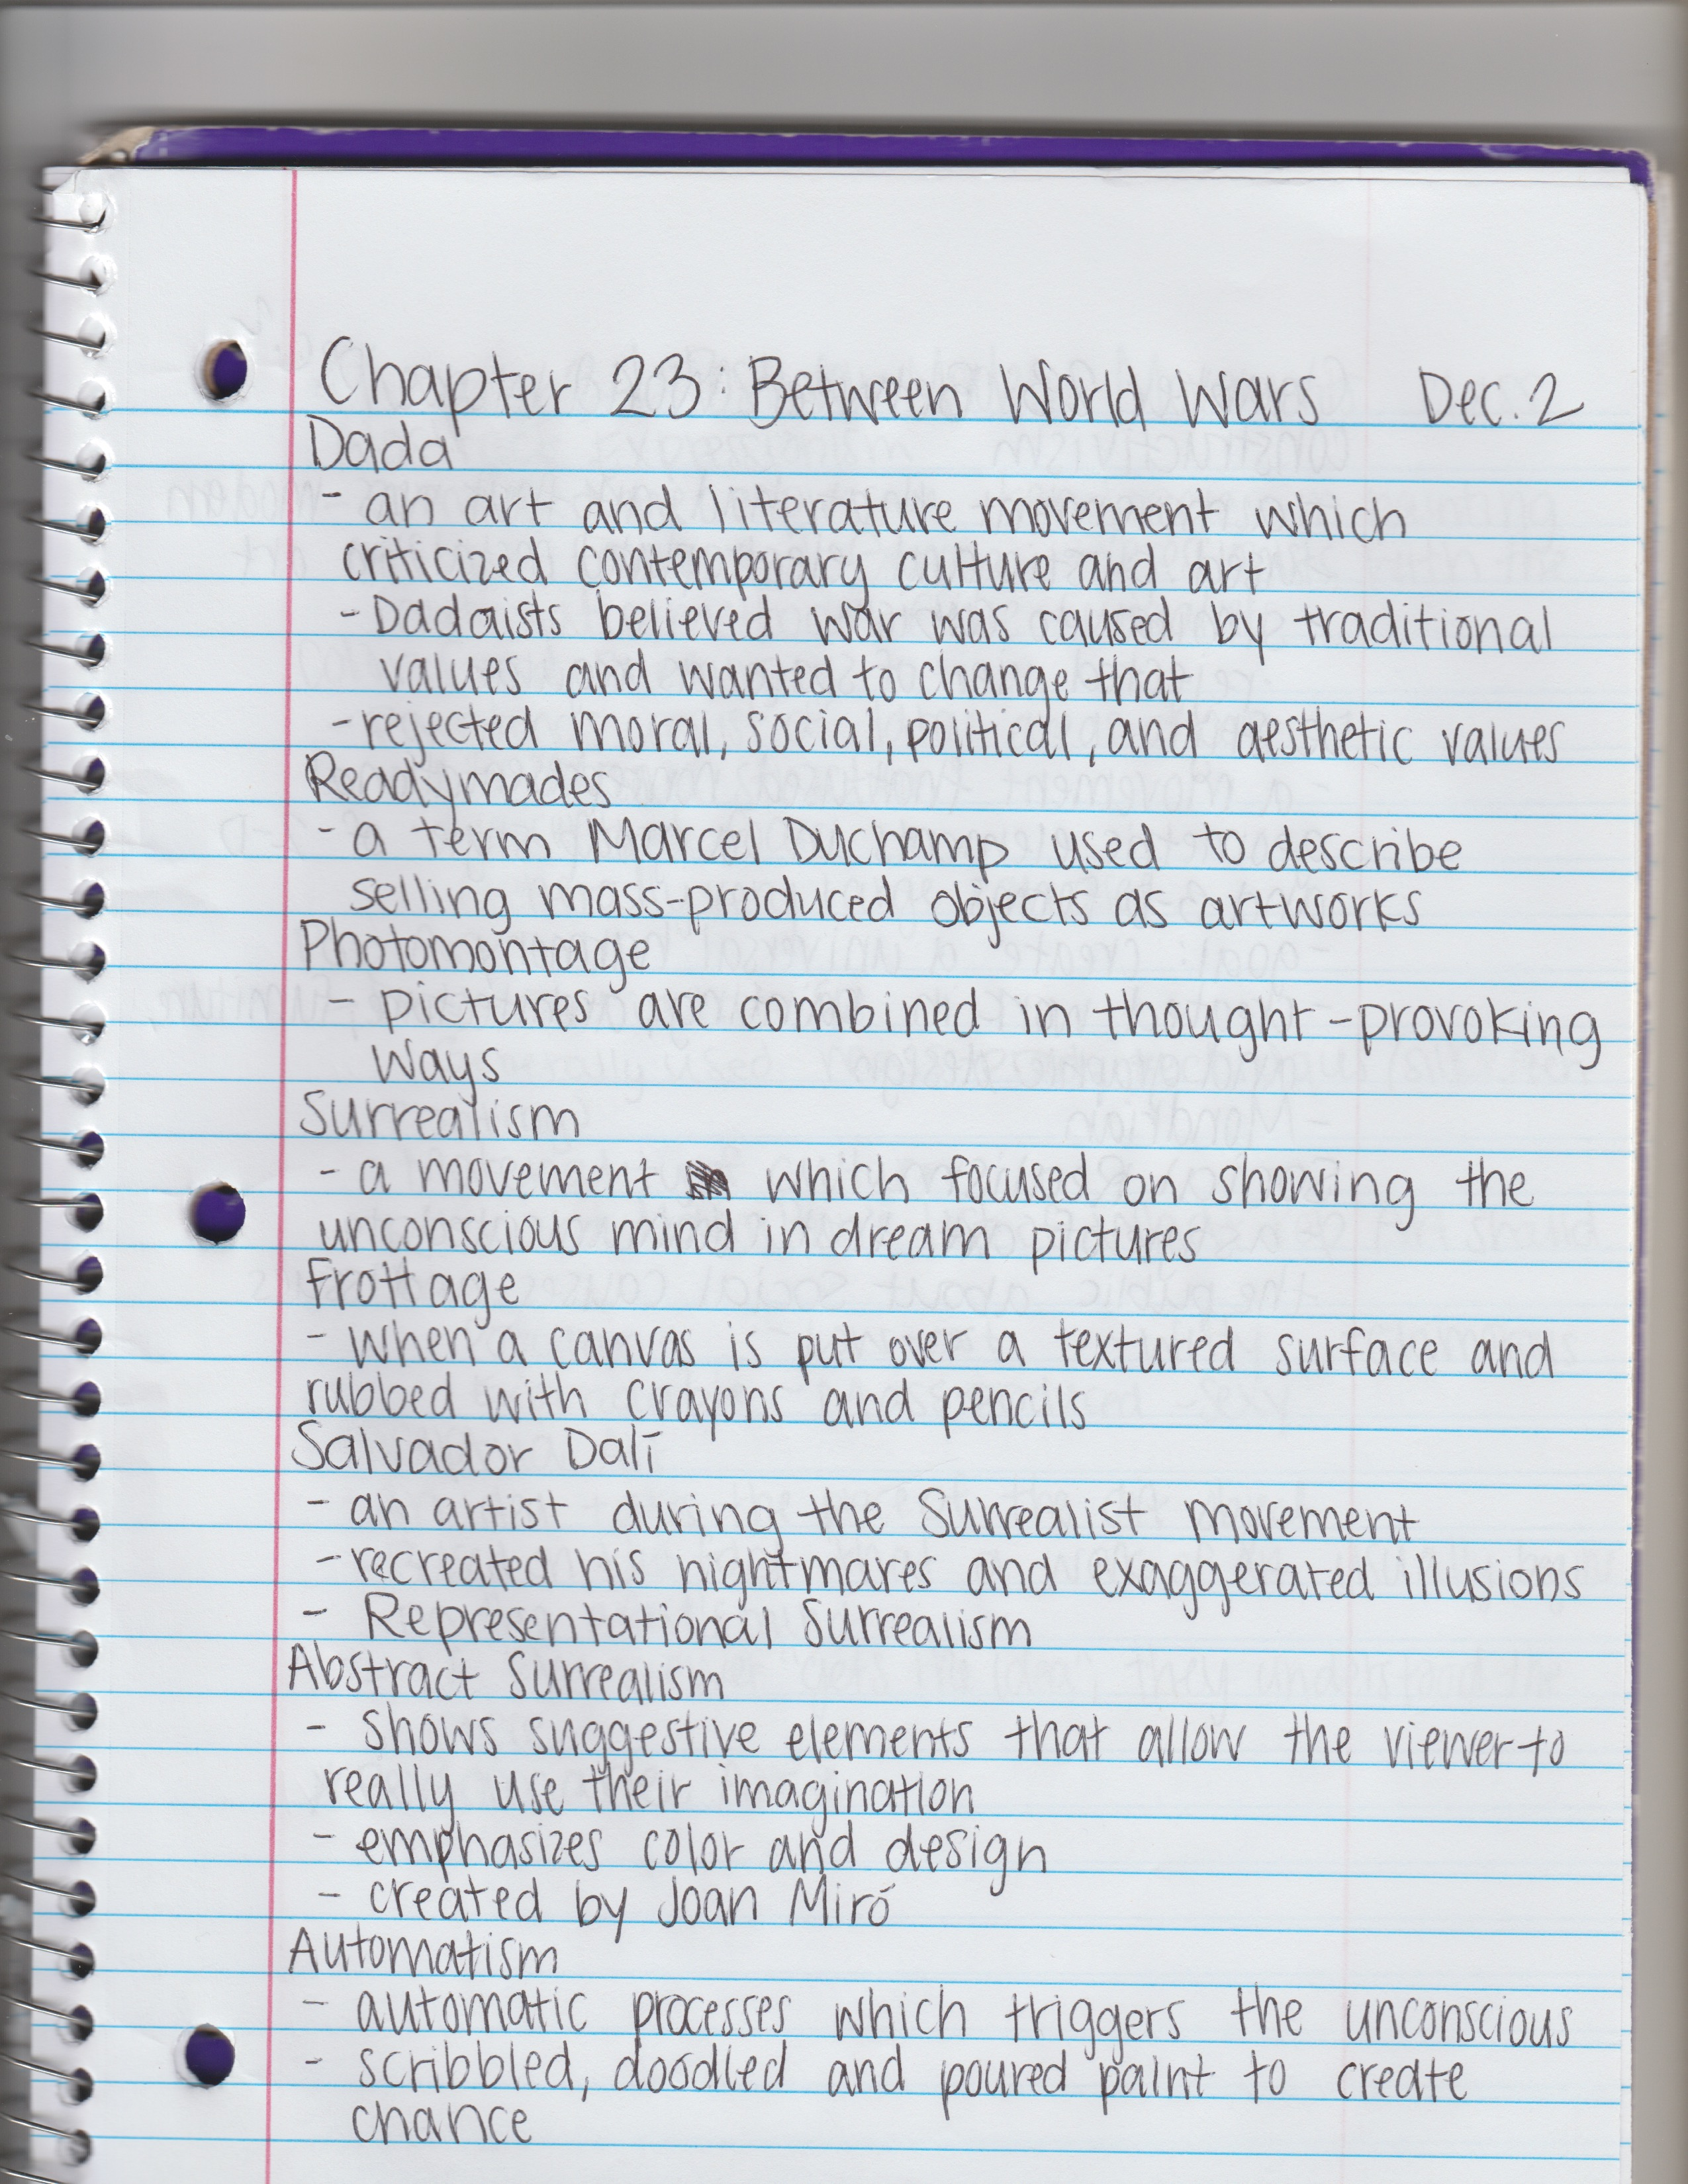 Chapter 23: Between World Wars Dec. 2
Dada
- an art and literature movement which
criticized contemporary culture and art
- Dadaists believed war was caused by traditional
values and wanted to change that
- rejected moral, social, political, and aesthetic values
Readymades
- a term Marcel Duchamp used to describe
selling mass-produced objects as artworks
Photomontage
- pictures are combined in thought-provoking
ways
Surrealism
- a movement which focused on showing the
unconscious mind in dream pictures
Frottage
- when a canvas is put over a textured surface and
rubbed with crayons and pencils
Salvador Dalí
- an artist during the Surrealist movement
- recreated his nightmares and exaggerated illusions
- Representational Surrealism
Abstract Surrealism
- shows suggestive elements that allow the viewer to
really use their imagination
- emphasizes color and design
- created by Joan Miró
Automatism
- automatic processes which triggers the unconscious
- scribbled, doodled and poured paint to create
chance